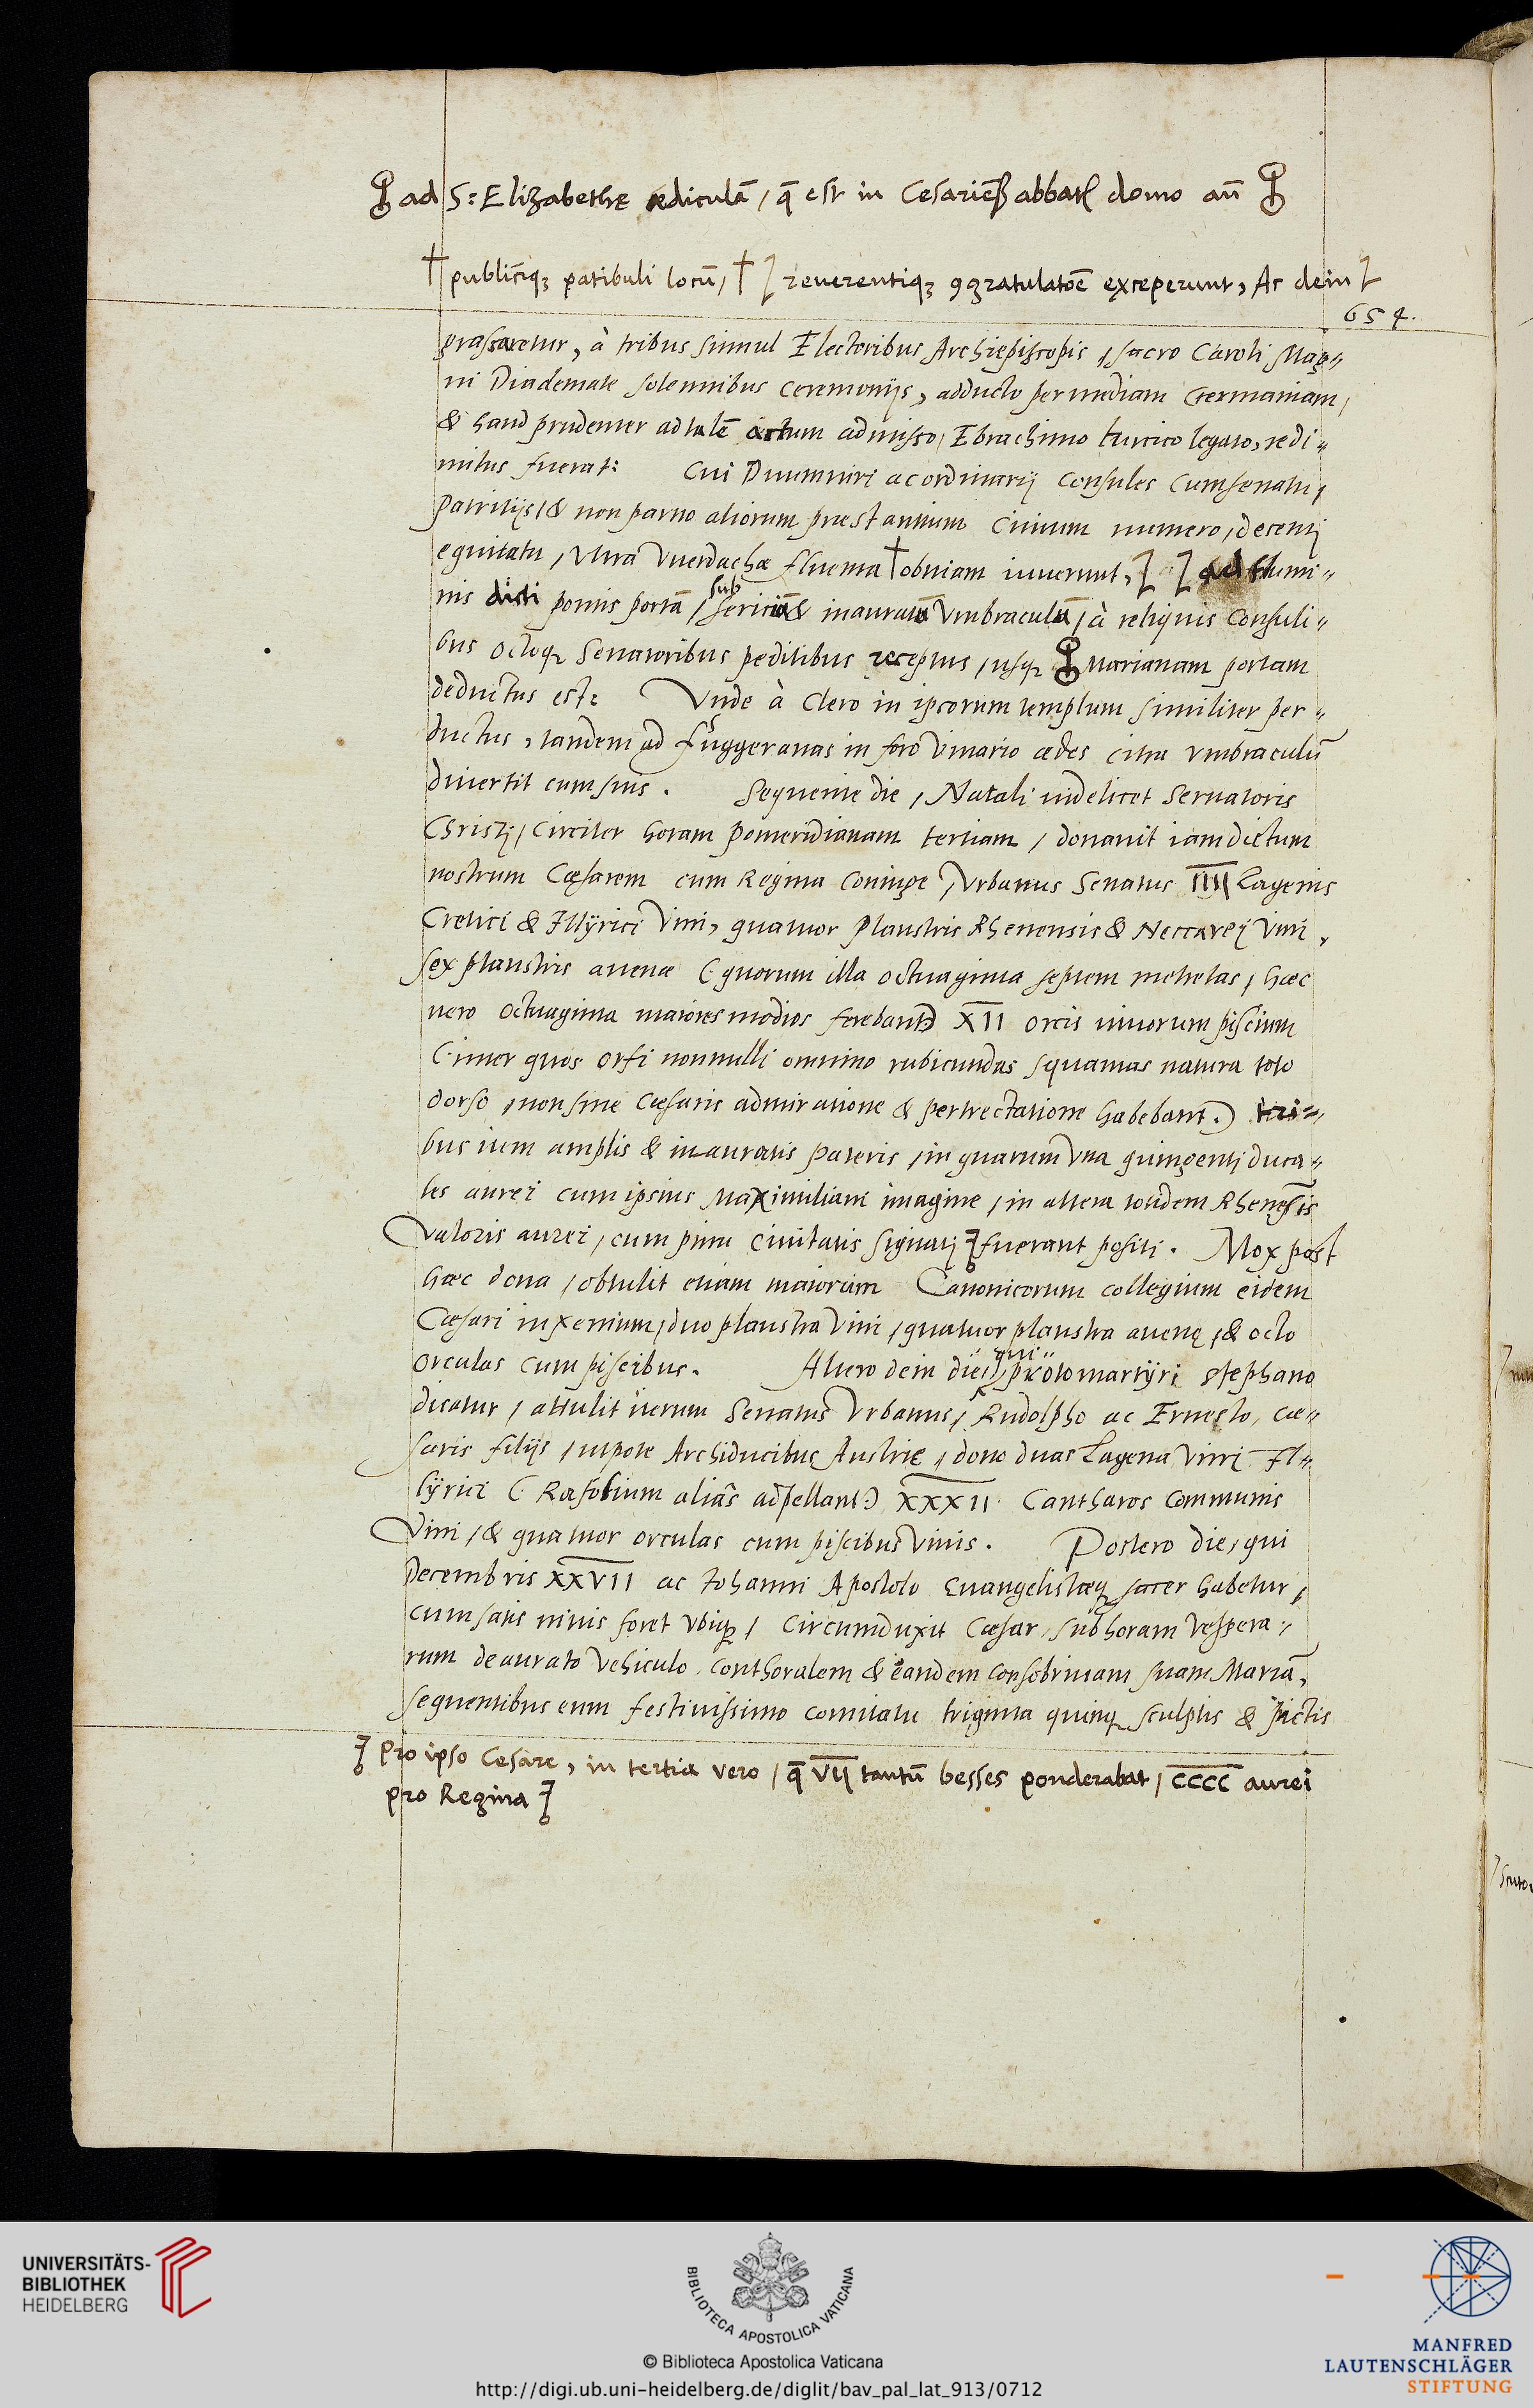 ad S: Elizabethę ædiculā, q̄ est in Cesarieñ abbatꝭ domo añ
† publicīq₃ patibuli locū, † reuerentiq₃ ꝯgratulatōe exceperunt, Ac dein
654.
grassaretur, à tribus simul Electoribus Archiepiscopis, sacro Caroli Mag„
ni Diademate solennibus ceremonijs, adducto per mediam Germaniam,
& haud prudenter ad talē actum admisso, Ebrachimo turcico legato, redi„
mitus fuerat: Cui Duumuiri ac ordinarij Consules cum senatu,
Patritijs, & non paruo aliorum praestantium Ciuium numero, decenti
equitatu, vltra Vuerdachæ fluenta † obuiam iuuerunt, ad flumi„
nis dicti pontis portā, sub sericiū & inauratū vmbraculū, à reliquis Consuli„
bus octoq₃ Senatoribus peditibus receptus, usq₃ Marianam portam
deductus est: Vnde à Clero in ipsorum templum similiter per„
ductus, tandem ad Fuggeranas in foro vinario ædes citra vmbraculū
diuertit cum suis. Sequente die, Natali uidelicet Seruatoris
Christi, circiter horam pomeridianam tertiam, donauit iam dictum
nostrum Cæsarem cum Regina coniuge, Vrbanus Senatus IIII Lagenis
Cretici & Illÿrici vini, quatuor plaustris Rhenensis & Neccarei vini,
sex plaustris auenæ (quorum illa octuaginta septem metretas, hæc
uero octuaginta maiores modios ferebant) XII orcis uiuorum piscium
(inter quos orfi nonnulli omnino rubicundas squamas natura toto
dorso, non sine Cæsaris admiratione & pertrectatione habebant.) tri„
bus item amplis & inauratis pateris, in quarum vna quingenti duca„
tes aurei cum ipsius Maximiliani imagine, in altera totidem Rhenensis
valoris aurei, cum pinu ciuitatis signati fuerant positi. Mox post
hæc dona, obtulit etiam maiorum Canonicorum collegium eidem
Cæsari in xenium, duo plaustra vini, quatuor plaustra auenę, & octo
orculas cum piscibus. Altero dein die, qui protomartÿri Stephano
dicatur, attulit iterum Senatus Vrbanus, Rudolpho ac Ernesto, Cæ„
saris filijs, utpote Archiducibus Austrię, dono duas Lagena vini Il„
lÿrici (Ræfolium aliàs adpellant) XXXII. Cantharos communis
Vini, & quatuor orculas cum piscibus viuis. Postero die, qui
Decembris XXVII ac Iohanni Apostolo Euangelistæq₃ sacer habetur,
cum satis niuis foret vbiq₃, circumduxit Cæsar, sub horam Vespera„
rum deaurato vehiculo, conthoralem & eandem consobrinam suam Mariā,
sequentibus eum festiuissimo comitatu triginta quinq₃ sculptis & pictis
Pro ipso Cesare, in tertia vero, q̄ VII tantū besses ponderabat, CCCC aurei
pro Regina
UNIVERSITÄTS-
BIBLIOTHEK
HEIDELBERG
BIBLIOTECA APOSTOLICA VATICANA
© Biblioteca Apostolica Vaticana
http://digi.ub.uni-heidelberg.de/diglit/bav_pal_lat_913/0712
MANFRED
LAUTENSCHLÄGER
STIFTUNG